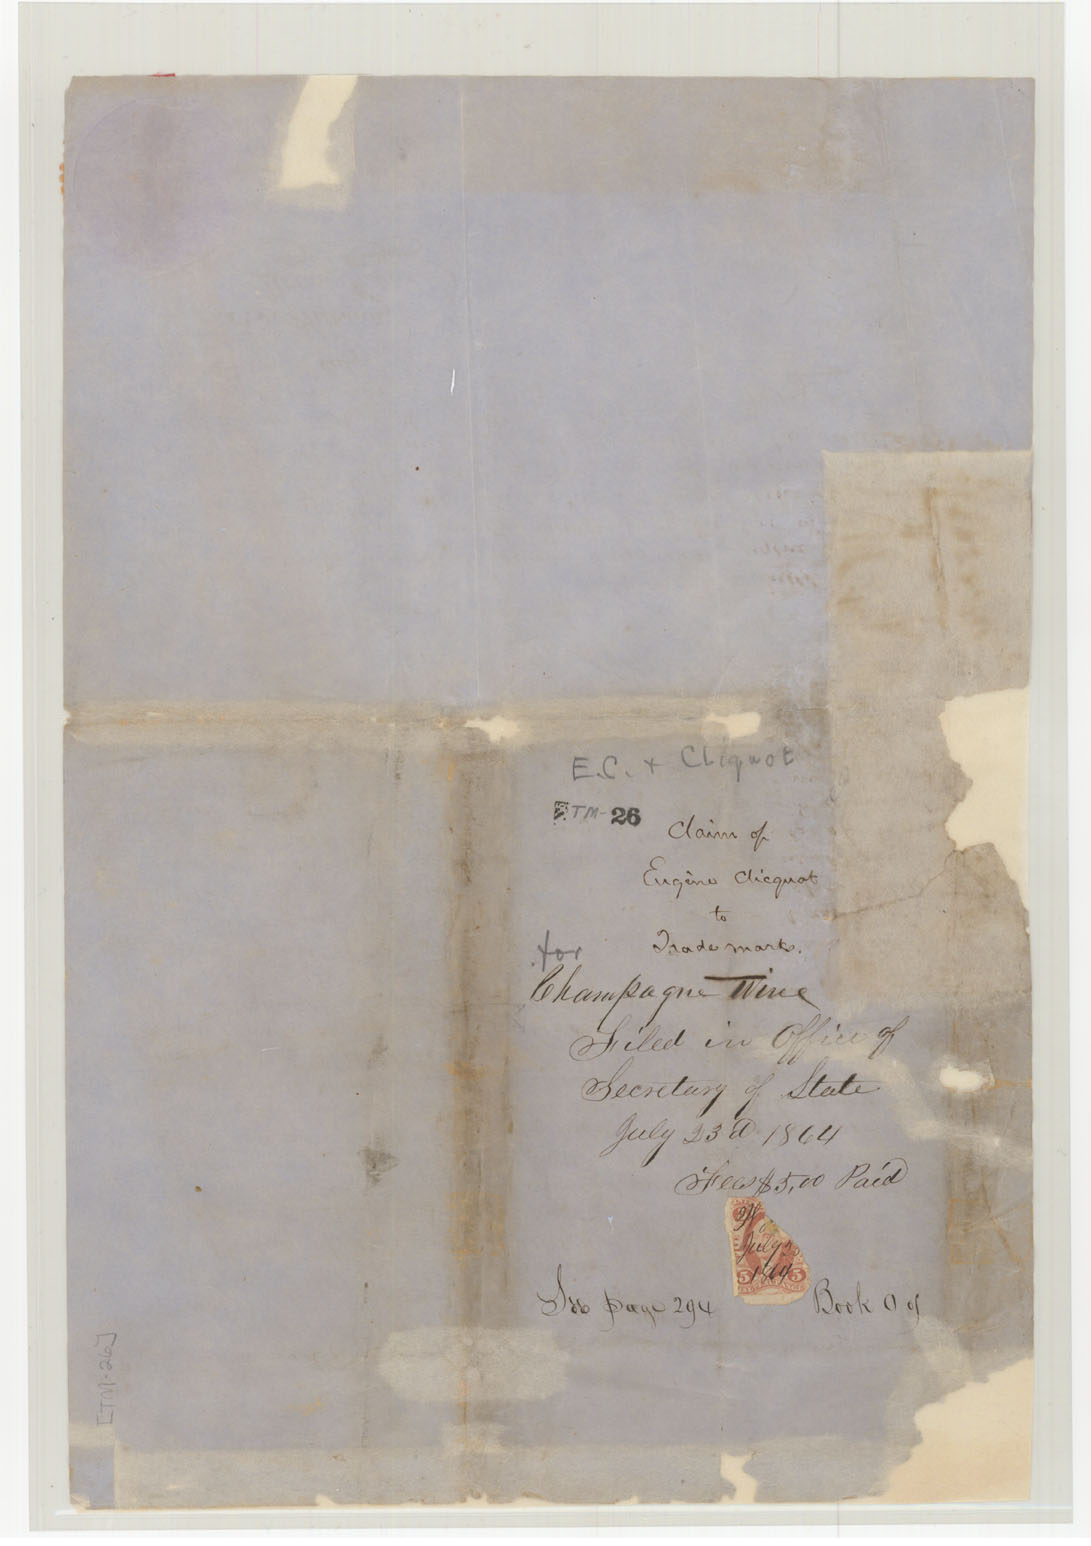 E.C. + Cliquot
TM-26
Claim of
Eugène Clicquot
to
Trade mark.
for
Champagne Wine
Filed in Office of
Secretary of State
July 23d 1864
Fees $5,00 Paid
July
1864
5 5
See page 294 Book O of
[TM-26]